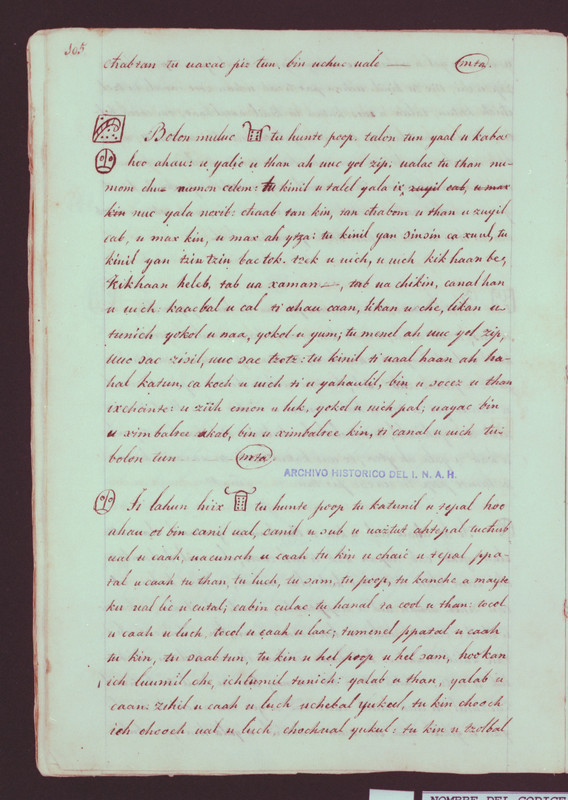 105
chabtan tu uaxac piz tun, bin uchuc uale — mta.
Bolon muluc tu hunte poop. tulon tun yaal u kaba
hoo ahau: u yalic u than ah uuc yol zip, ualac tu than nu-
mom chu= numen cetem: tu kinil u talel yala ix zuyil cab, u max
kin nuc yala nexib: chaab tan kin, tan chabom u than u zuyil
cab, u max kin, u max ah ytza: tu kinil yan sinsin ca xuul, tu
kinil yan tzin tzin bac tok. tzek u uich, u uich kik haan be,
Kikhaan heleb, tab ua xaman —, tab ua chikin, canal han
u uich: kaacbal u cal ti ahau caan, likan u che, likan u
tunich yokol u naa, yokol u yum; tu menel ah uuc yol zip,
uuc sac zisil, uuc sac tzotz: tu kinil ti uaal haan ah ha-
hal katun, ca koch u uich ti u yahaulil, bin u socez u than
ixcheinte: u ziih emon u luk, yokol u uich pal; uayac bin
u ximbaltee akab, bin u ximbaltee kin, ti canal u uich tu-
bolon tun mta
ARCHIVO HISTORICO DEL I. N. A. H.
Ti lahun hiix tu hunte poop tu katunil u tepal hoo
ahau ot bin canil ual, canil u sub u uaztut ahtepal tuchub
ual u caah, uacunah u caah tu kin u chaic u tepal ppa-
tal u caah tu than, tu luch, tu sam, tu poop, tu kanche a mayte
ku ual lic u cutal; cabin culac tu hanal ta cool u than: tocol
u caah u luch, tocol u caah u laac; tumenel ppatal u caah
tu kin, tu saab tun, tu kin u hel poop u hel sam, hookan
ich luumil che, ichlumil tunich: yalab u than, yalab u
caan: zihil u caah u luch uchebal yukul, tu kin chooch
ich choch ual u luch, chochual yukul: tu kin u tzolbal
NOMBRE DEL CODICE